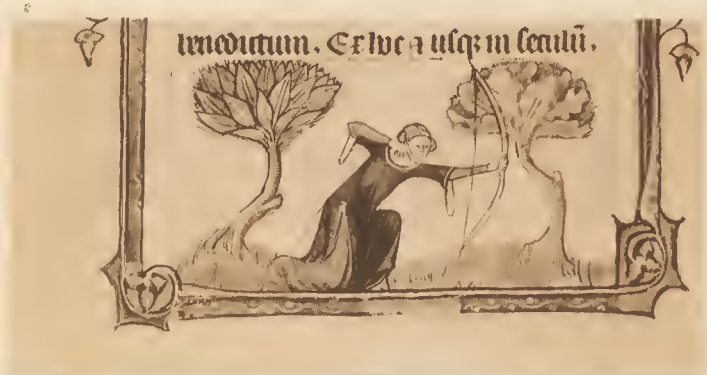 benedictum. Ex hoc ⁊ usqꝫ in seculū.